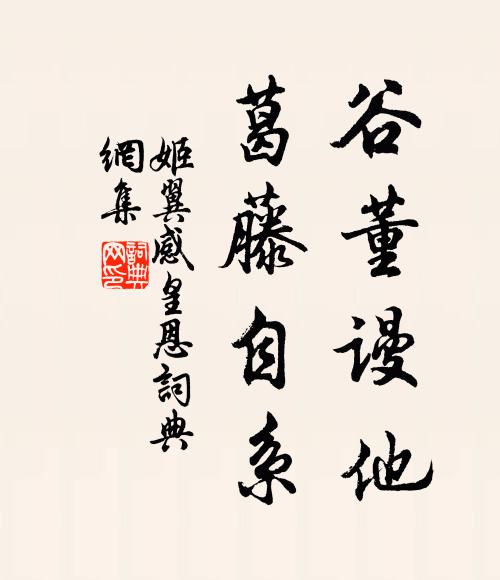 谷董謾他
葛藤自系
姬翼感皇恩詞典
網集
詞典
网印